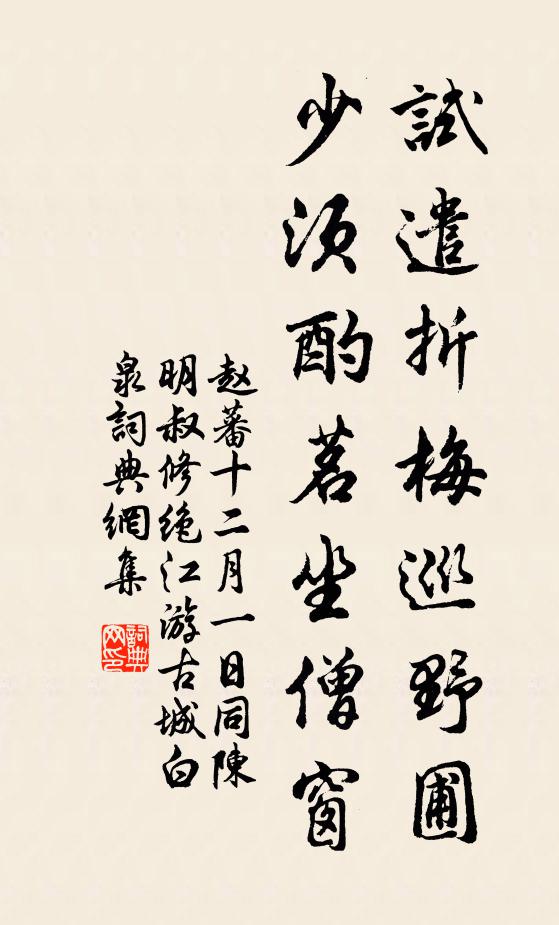 試遣折梅巡野圃
少須酌茗坐僧窗
赵蕃十二月一日同陳
明叔修絶江游古城白
泉詞典網集
詞典网印